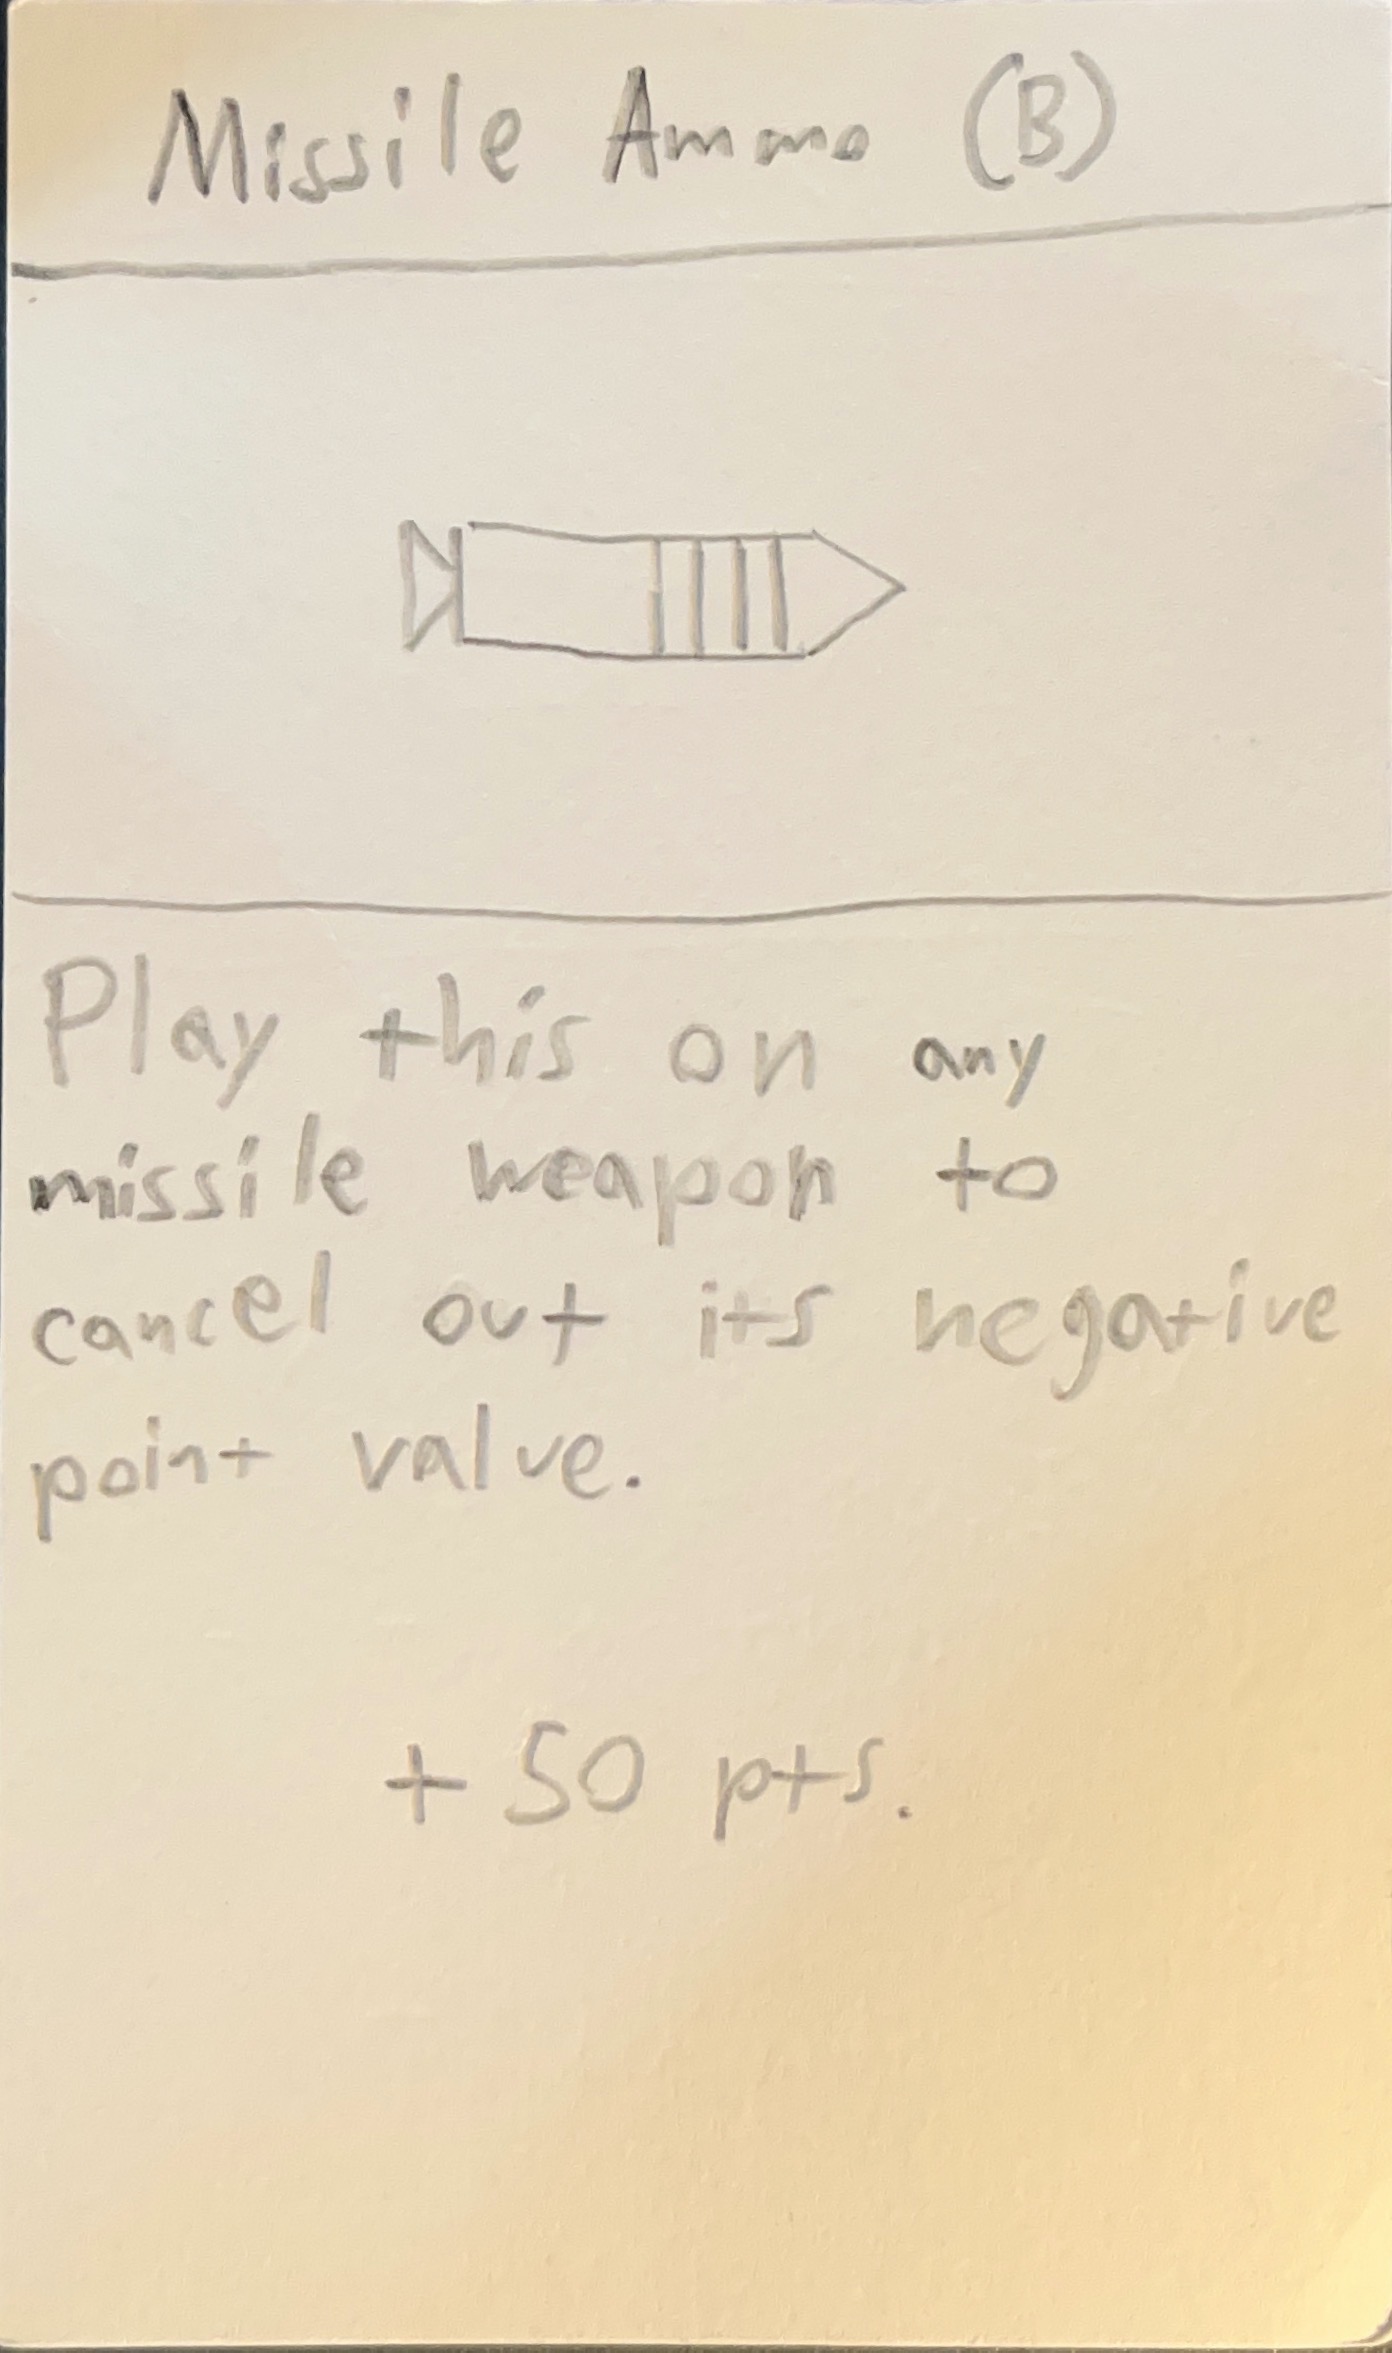 Missile Ammo (B)
Play this on any
missile weapon to
cancel out its negative
point value.
+ 50 pts.